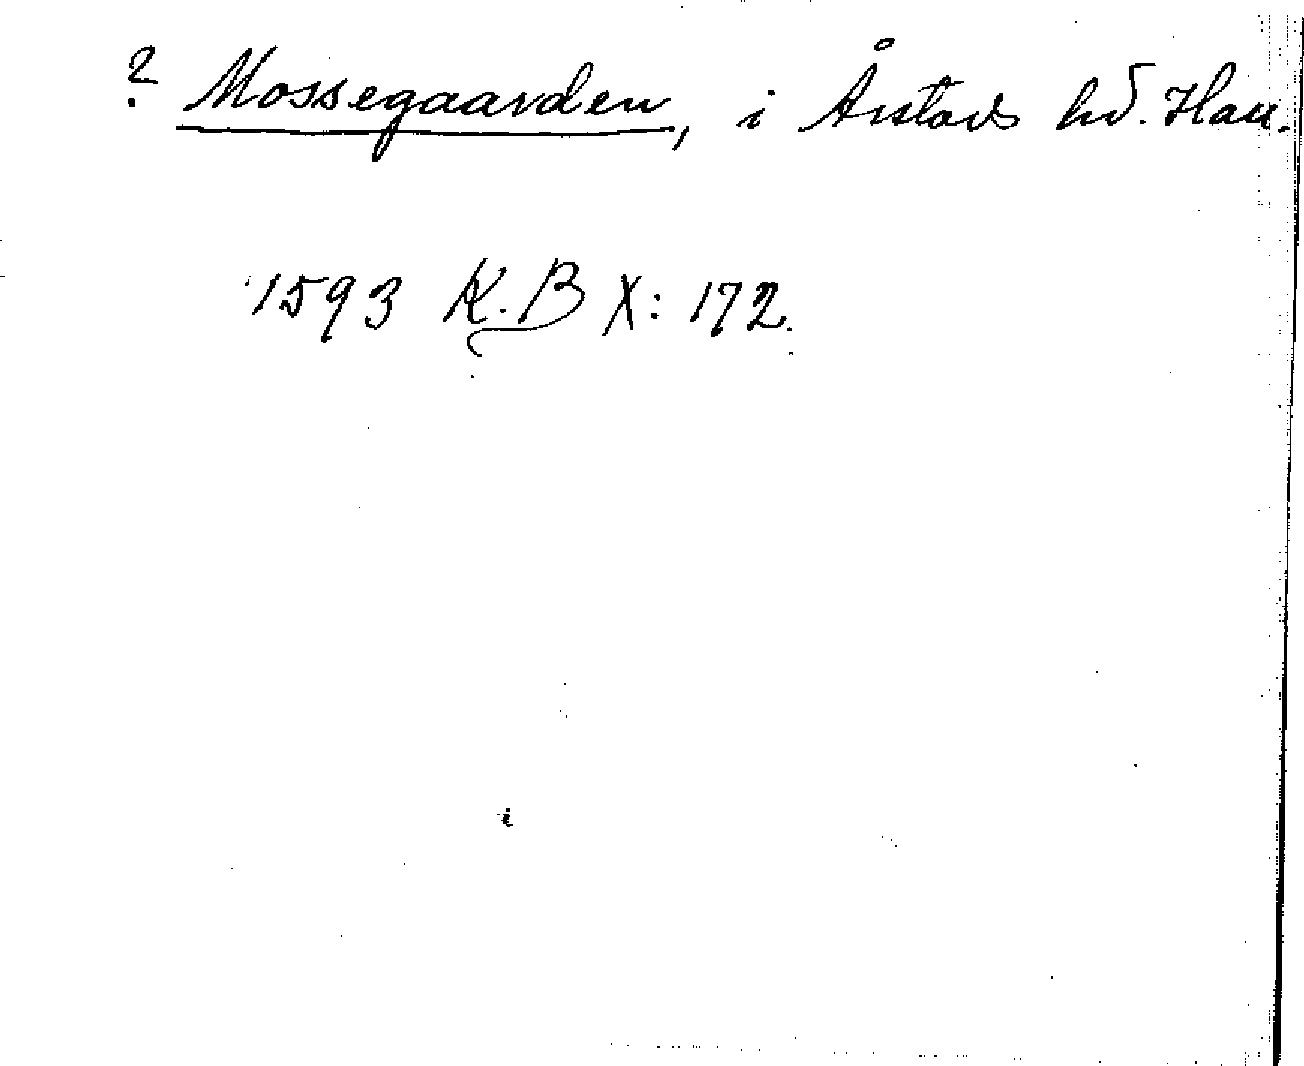 ? Mossegaarden, i Årstads hd. Hall.
1593 K.B X: 172.